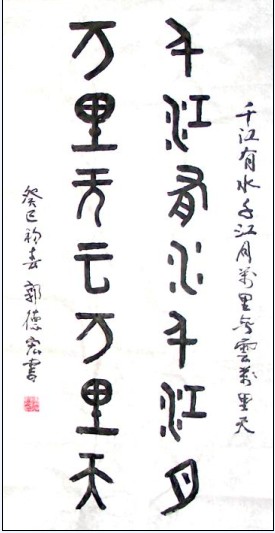 千江有水千江月萬里無雲萬里天
千江有水千江月
万里无云万里天
癸巳初春 郭德宏書